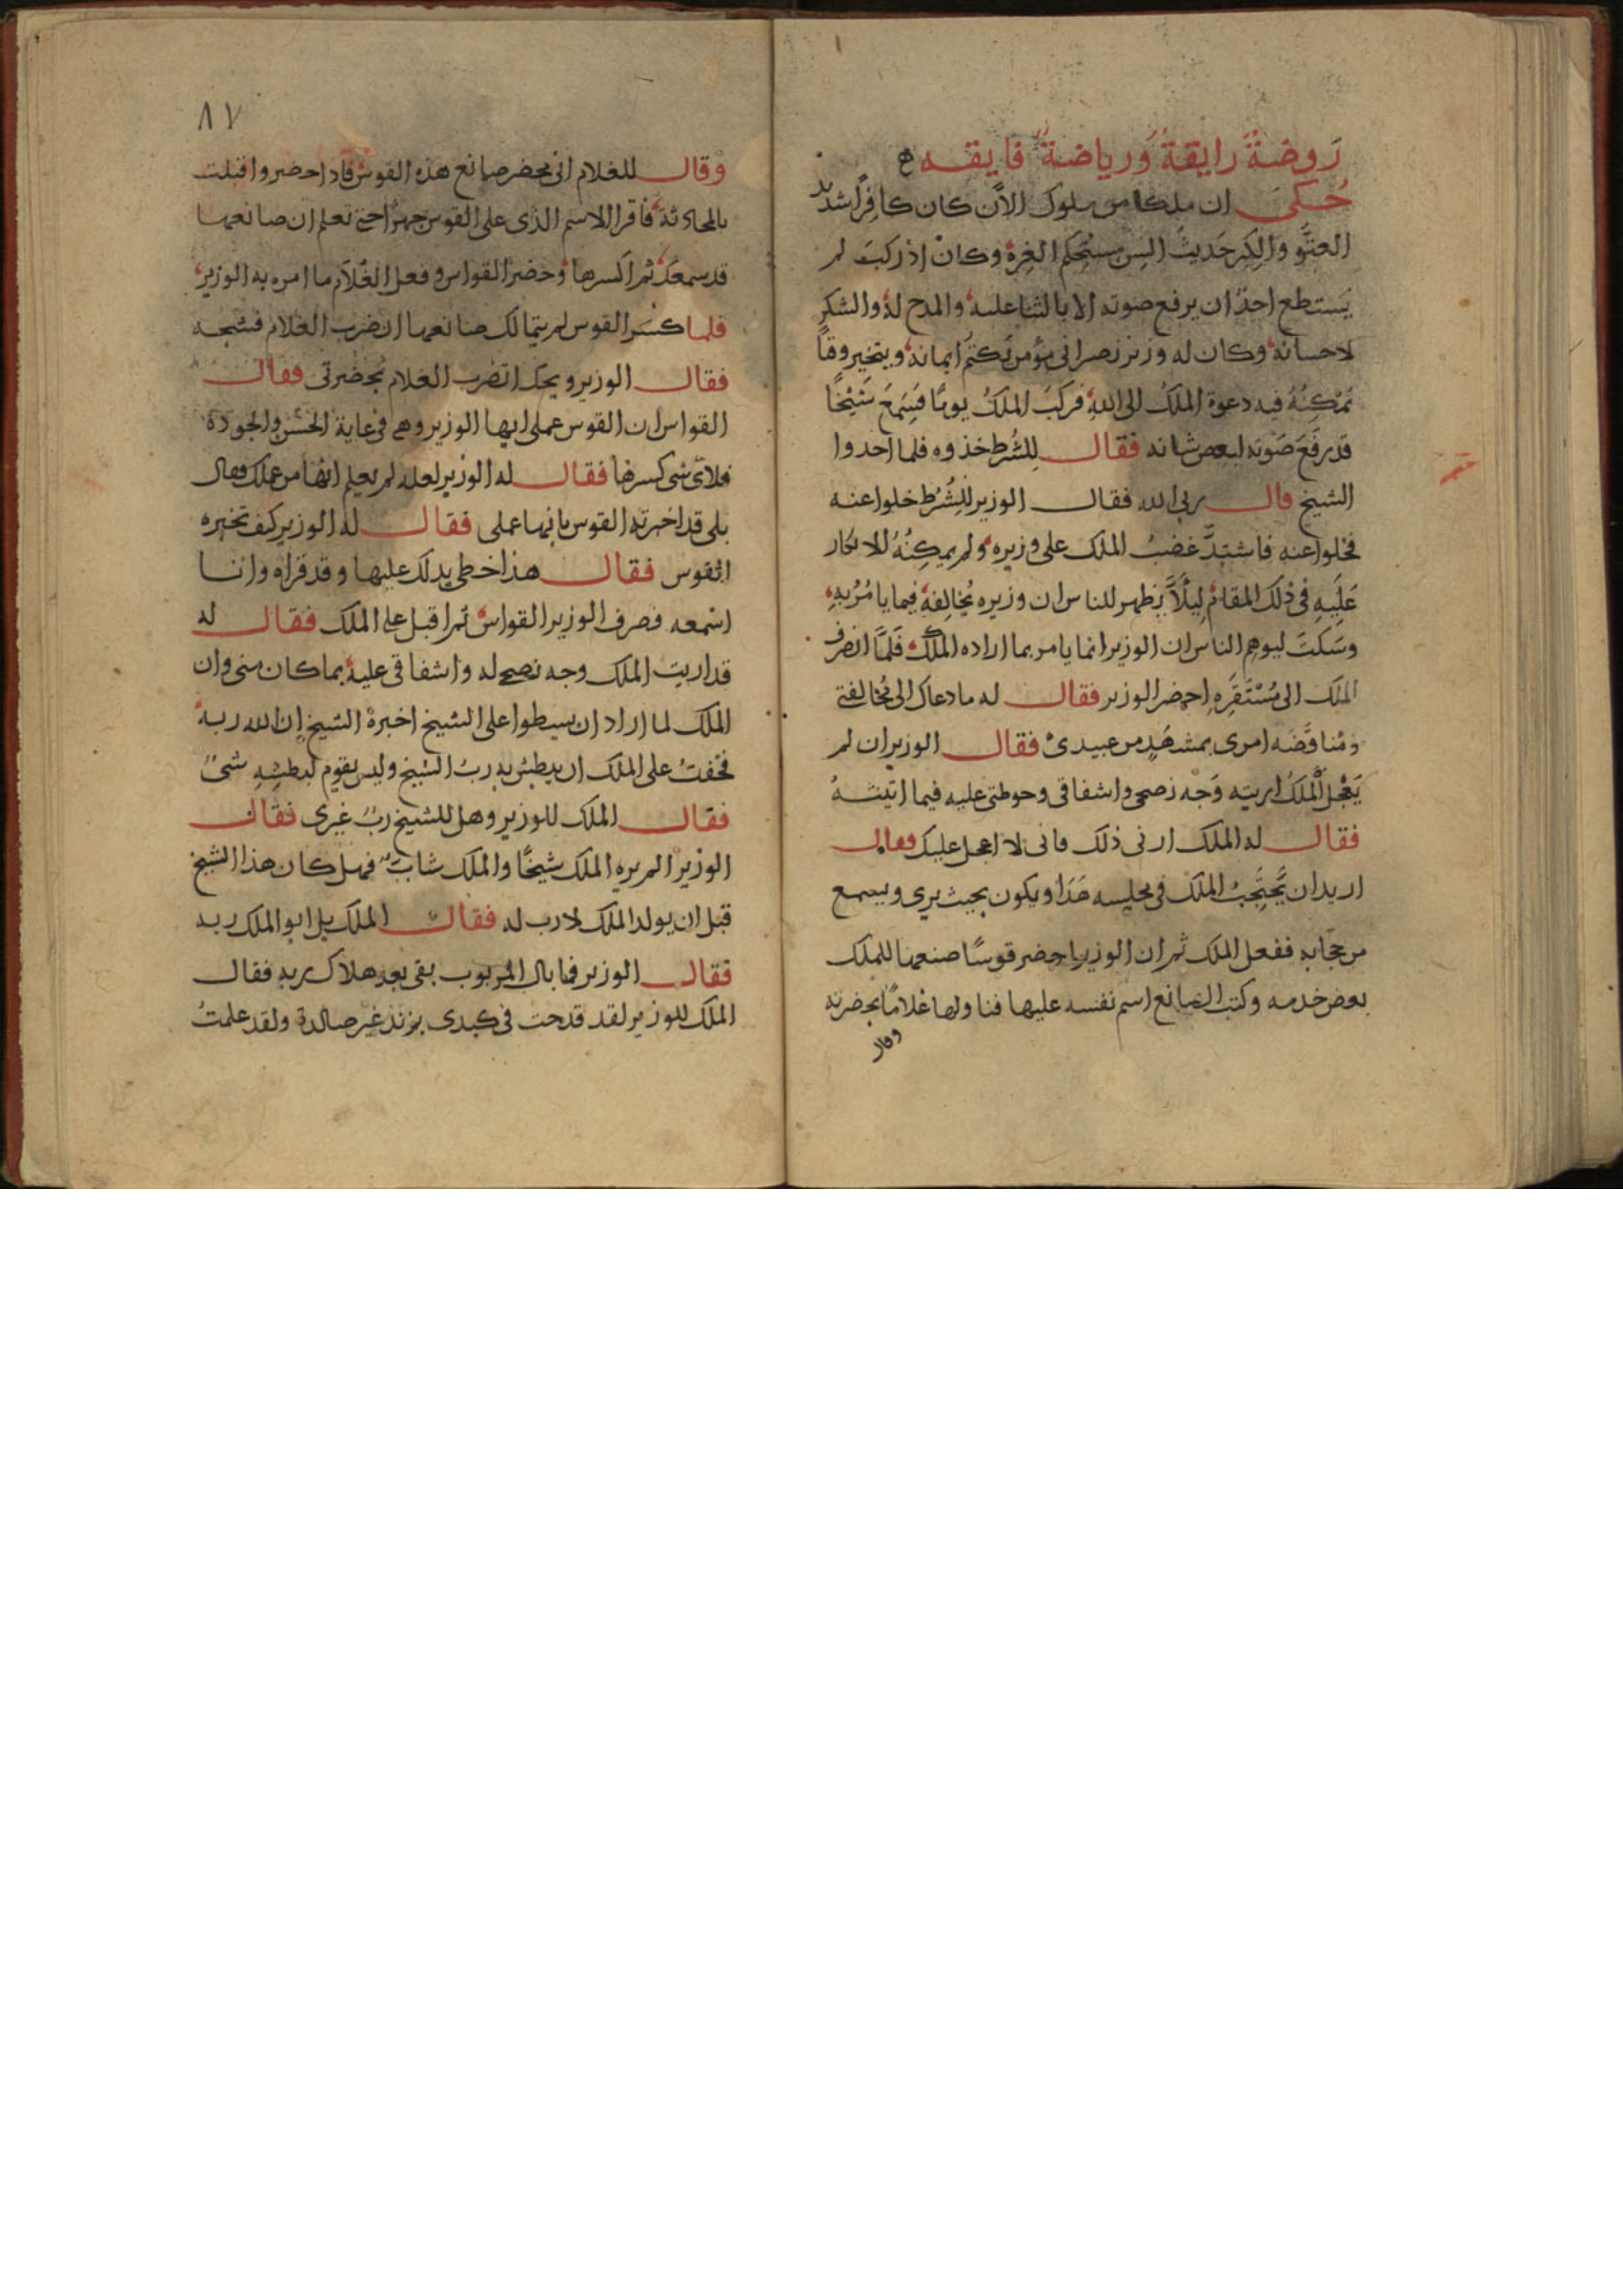 روضة رايقة ورياضة فايقه
حُكىَ ان ملكا من ملوك الأن كان كافرًا شديد
العتوّ والكبر حَديثَ السِن مستحكم الغِرة وكان اذ ركبَ لم
يَستطع احدٌ ان يرفع صوته الا بالثنا عليه والمدح له والشكر
لاحسانه وكان له وزير نصرانى مؤمن يكتمُ ايمانه ويتخير وقتًا
تمكِنُهُ فيه دعوة الملكُ الى الله فركبَ الملكُ يومًا فسَمِعَ شَيْخًا
قد رفَعَ صَوته لبعض شانه فقال للشُرط خذوه فلما اخدوا
الشيخ قال ربى الله فقال الوزير للِشُرْط خلوا عنه
فخلوا عنه فاشتدَّ غضبُ الملك على وزيره ولم يمكِنُهُ الانكار
عَليَهِ فى ذلك المقام لِيلاَّ يظهر للناس ان وزيره يُخالِفهُ فيما يامُرُ بهِ
وسَكتَ ليوهم الناس ان الوزير انما يامر بما اراده الملك فلمَّا انصرف
الملك الى مُسْتَقَرِهِ احضر الوزير فقال له ما دعاك الى مُخالفتى
ومُناقضَه امرى بمشهَدٍ من عبيدى فقال الوزير ان لم
يَعْجل الملكُ اريته وَجْه نصحى واشفاقى وحوطتى عليه فيما اتيتهُ
فقال له الملك ارنى ذلك فانى لا اعجل عليك فقال
اريد ان يحتَجِبُ الملك فى مجليسه هَذا ويكون بحيث يرى ويسمع
من حجابه ففعل الملك ثم ان الوزير احضر قوسًا صنعها للملك
بعض خدمه وكتب الصانع اسم نفسه عليها فناولها غلامًا بحضرته
وقال
٨٧
وقال للغلام انى محضر صانع هذه القوس فاذا حضر واقبلت
بالمحادثة فاقرا الاسم الذى على القوس جهرًا حتى تعلم ان صانعها
قد سمعك ثم اكسرها وحضر القواس وفعل الغُلاَم ما امره به الوزير
فلما كسر القوس لم يتمالك صانعها ان ضرب الغلام فشجه
فقال الوزير ويحك اتضرب الغلام بحضرتى فقال
القواس ان القوس عملى ايها الوزير وهى فى غاية الحسْن والجودة
فلاى شى كسرها فقال له الوزير لعله لم يعلم انها من عملك فقال
بلى قد اخبرته القوس بانها عملى فقال له الوزير كيف تخبره
القوس فقال هذا خطى يدلك عليها وقد قراه وانا
اسْمعه فصرف الوزير القواس ثم اقبل على الملك فقال له
قد اريت الملك وجه نصحى له واشفاقى عليه بما كان منى وان
الملك لما اراد ان يسطوا على الشيخ اخبرهُ الشيخ إن الله ربه
فخفتُ على الملك ان يبطش به ربُ الشيخ وليس يقوم لبطشِهِ شىٌ
فقال الملك للوزير وهل للشيخ ربٌ غيرى فقال
الوزير الم يره الملك شيخًا والملك شابٌ فهل كان هذا الشيخ
قبل ان يولد الملك لا رب له فقال الملك بل ابو الملك ربه
فقال الوزير فما بال المربوب بقى بعد هلاك ربه فقال
الملك للوزير لقد قدحت فى كبدى بزند غير صالدة ولقد علمتُ